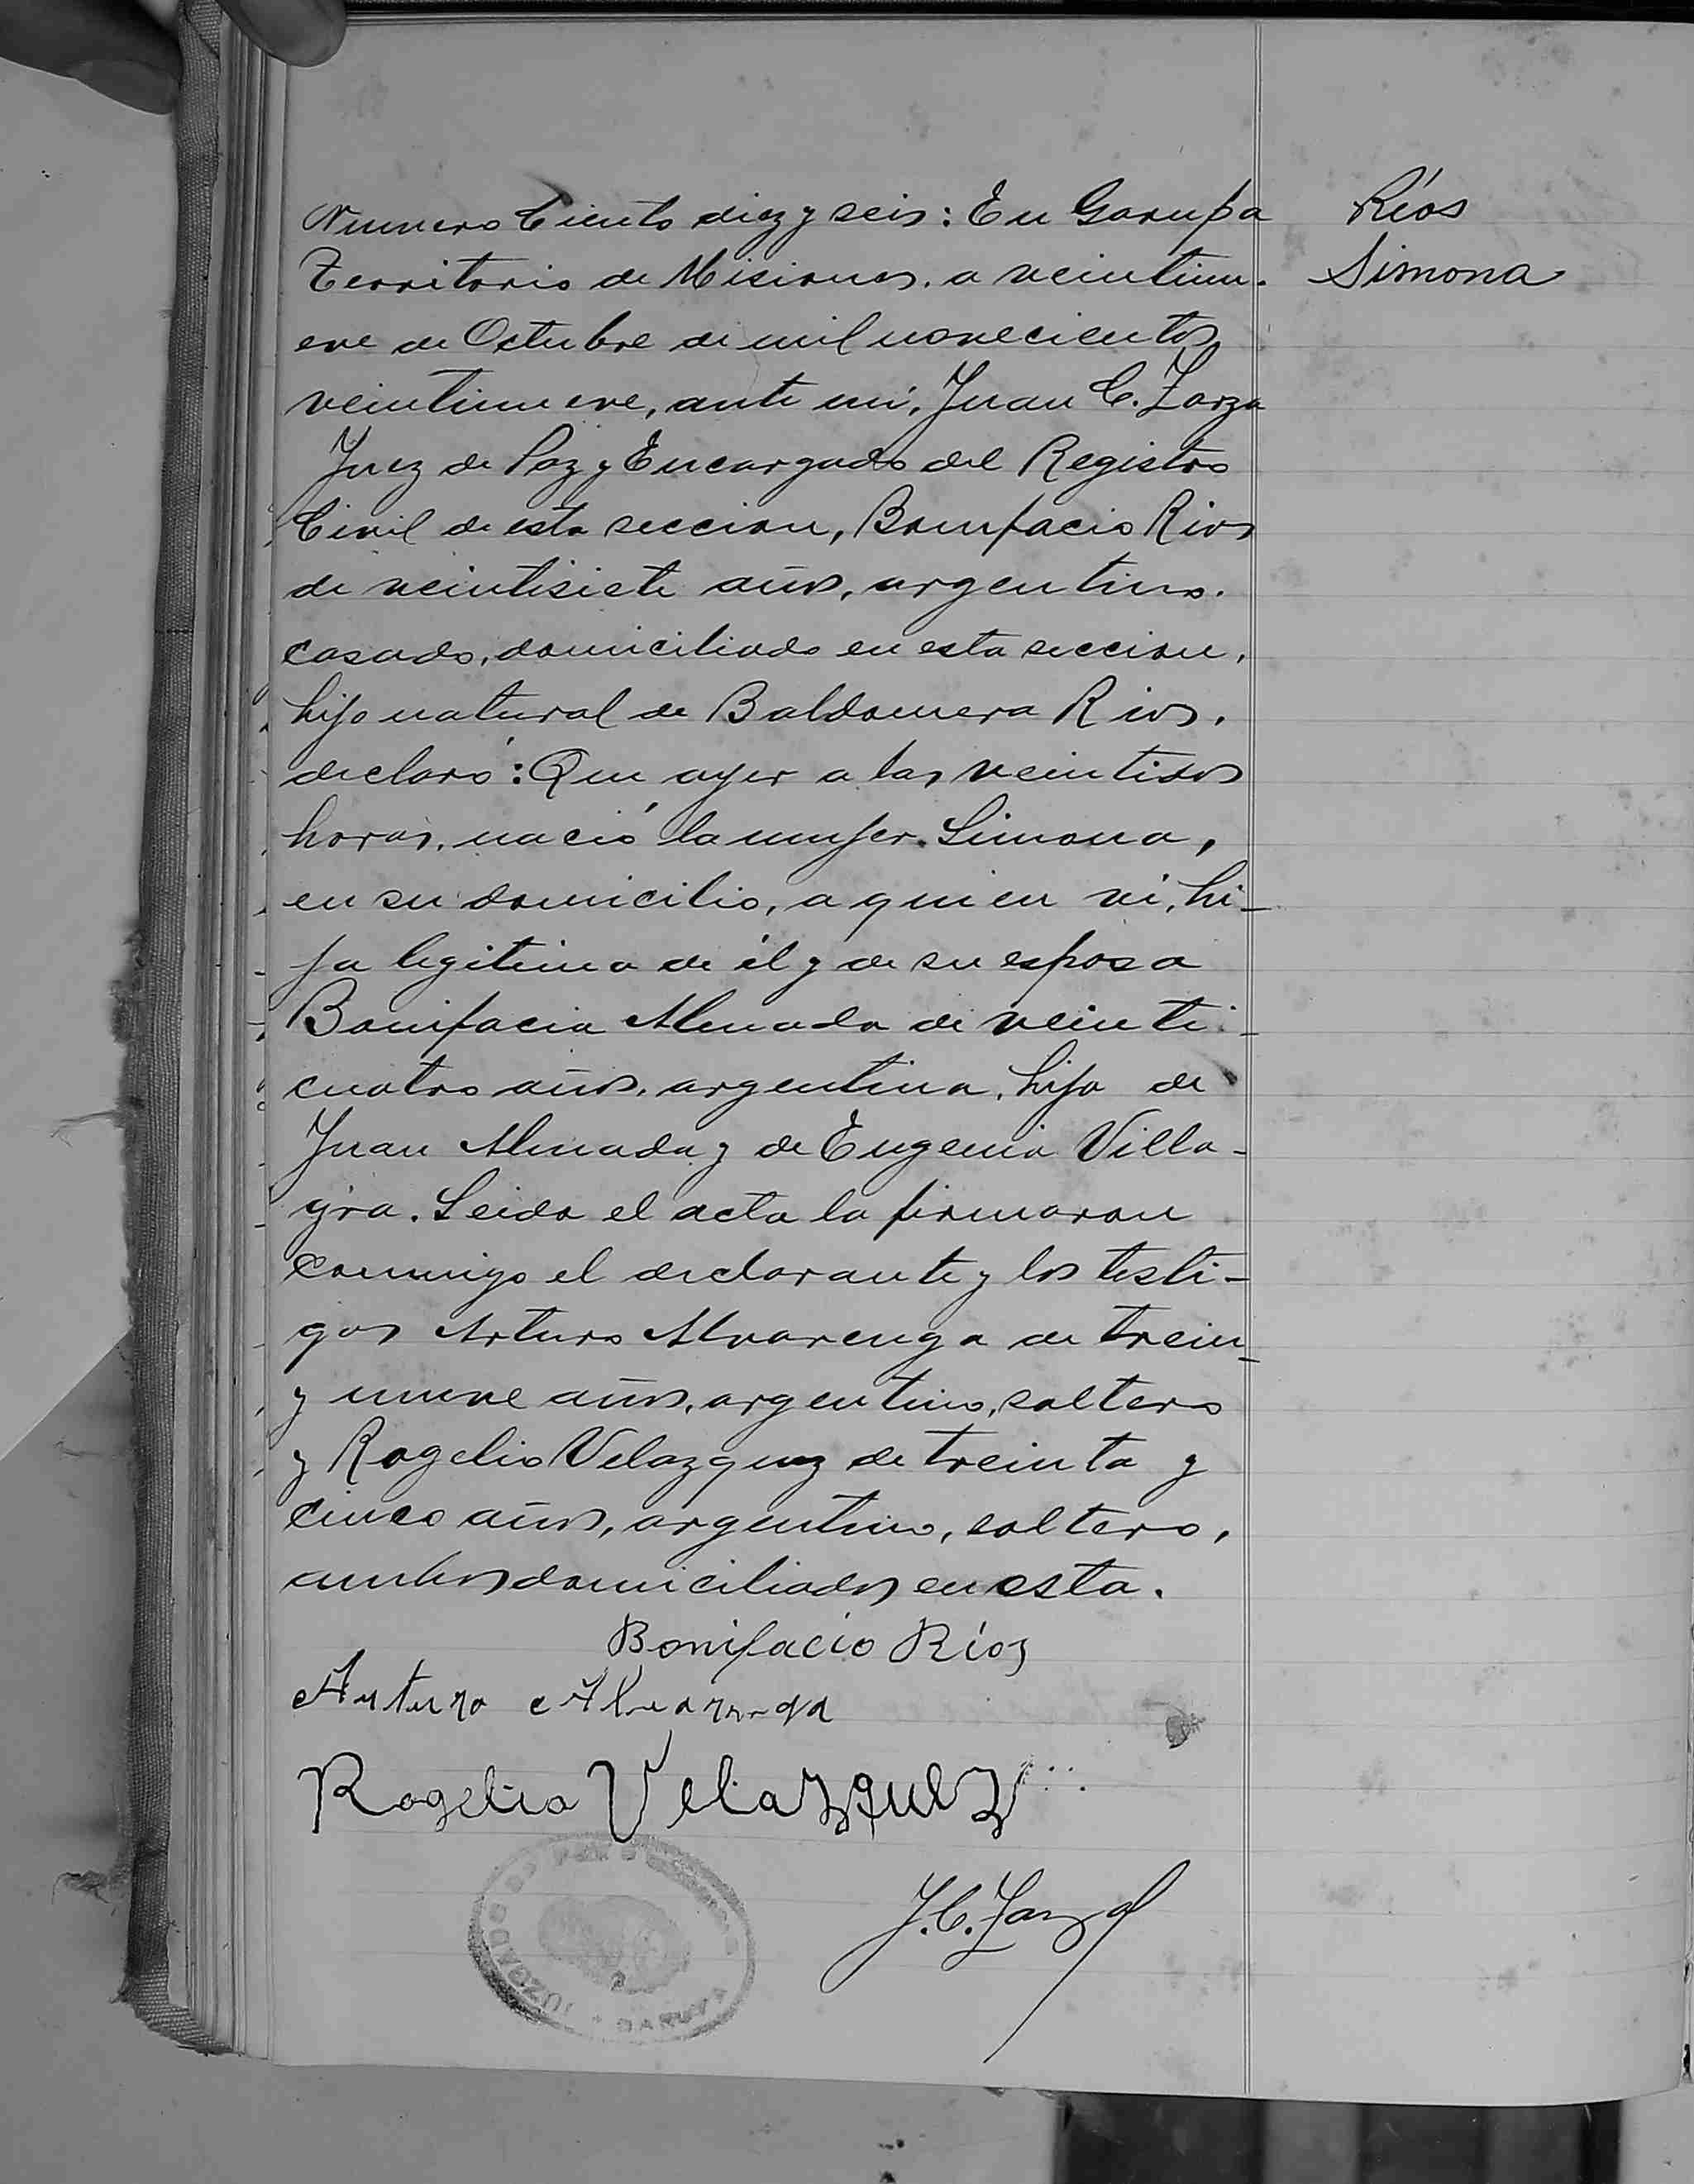 Numero Ciento diez y seis: En Garupa
Territorio de Misiones, a veintinu-
eve de Octubre de mil novecientos
veintinueve, ante mí, Juan C. Zarza
Juez de Paz y Encargado del Registro
Civil de esta seccion, Bonifacio Rios
de veintisiete años, argentino.
casado, domiciliado en esta seccion,
hijo natural de Baldomera Rios,
declaró: Que ayer a las veintidos
horas, nació la mujer Simona,
en su domicilio, a quien ví, hi-
ja legitima de él y de su esposa
Bonifacia Almada de veinti-
cuatro años, argentina, hija de
Juan Almada y de Eugenia Villa-
gra. Leida el acta la firmaron
conmigo el declarante y los testi-
gos Arturo Alvarenga de trein-
y nueve años, argentino, soltero
y Rogelio Velazquez de treinta y
cinco años, argentino, soltero,
ambos domiciliados en esta.
Bonifacio Ríos
Arturo Alvarenga
Rogelio Velazquez
J. C. Zarza
JUZGADO DE PAZ
GARUPA
Ríos
Simona